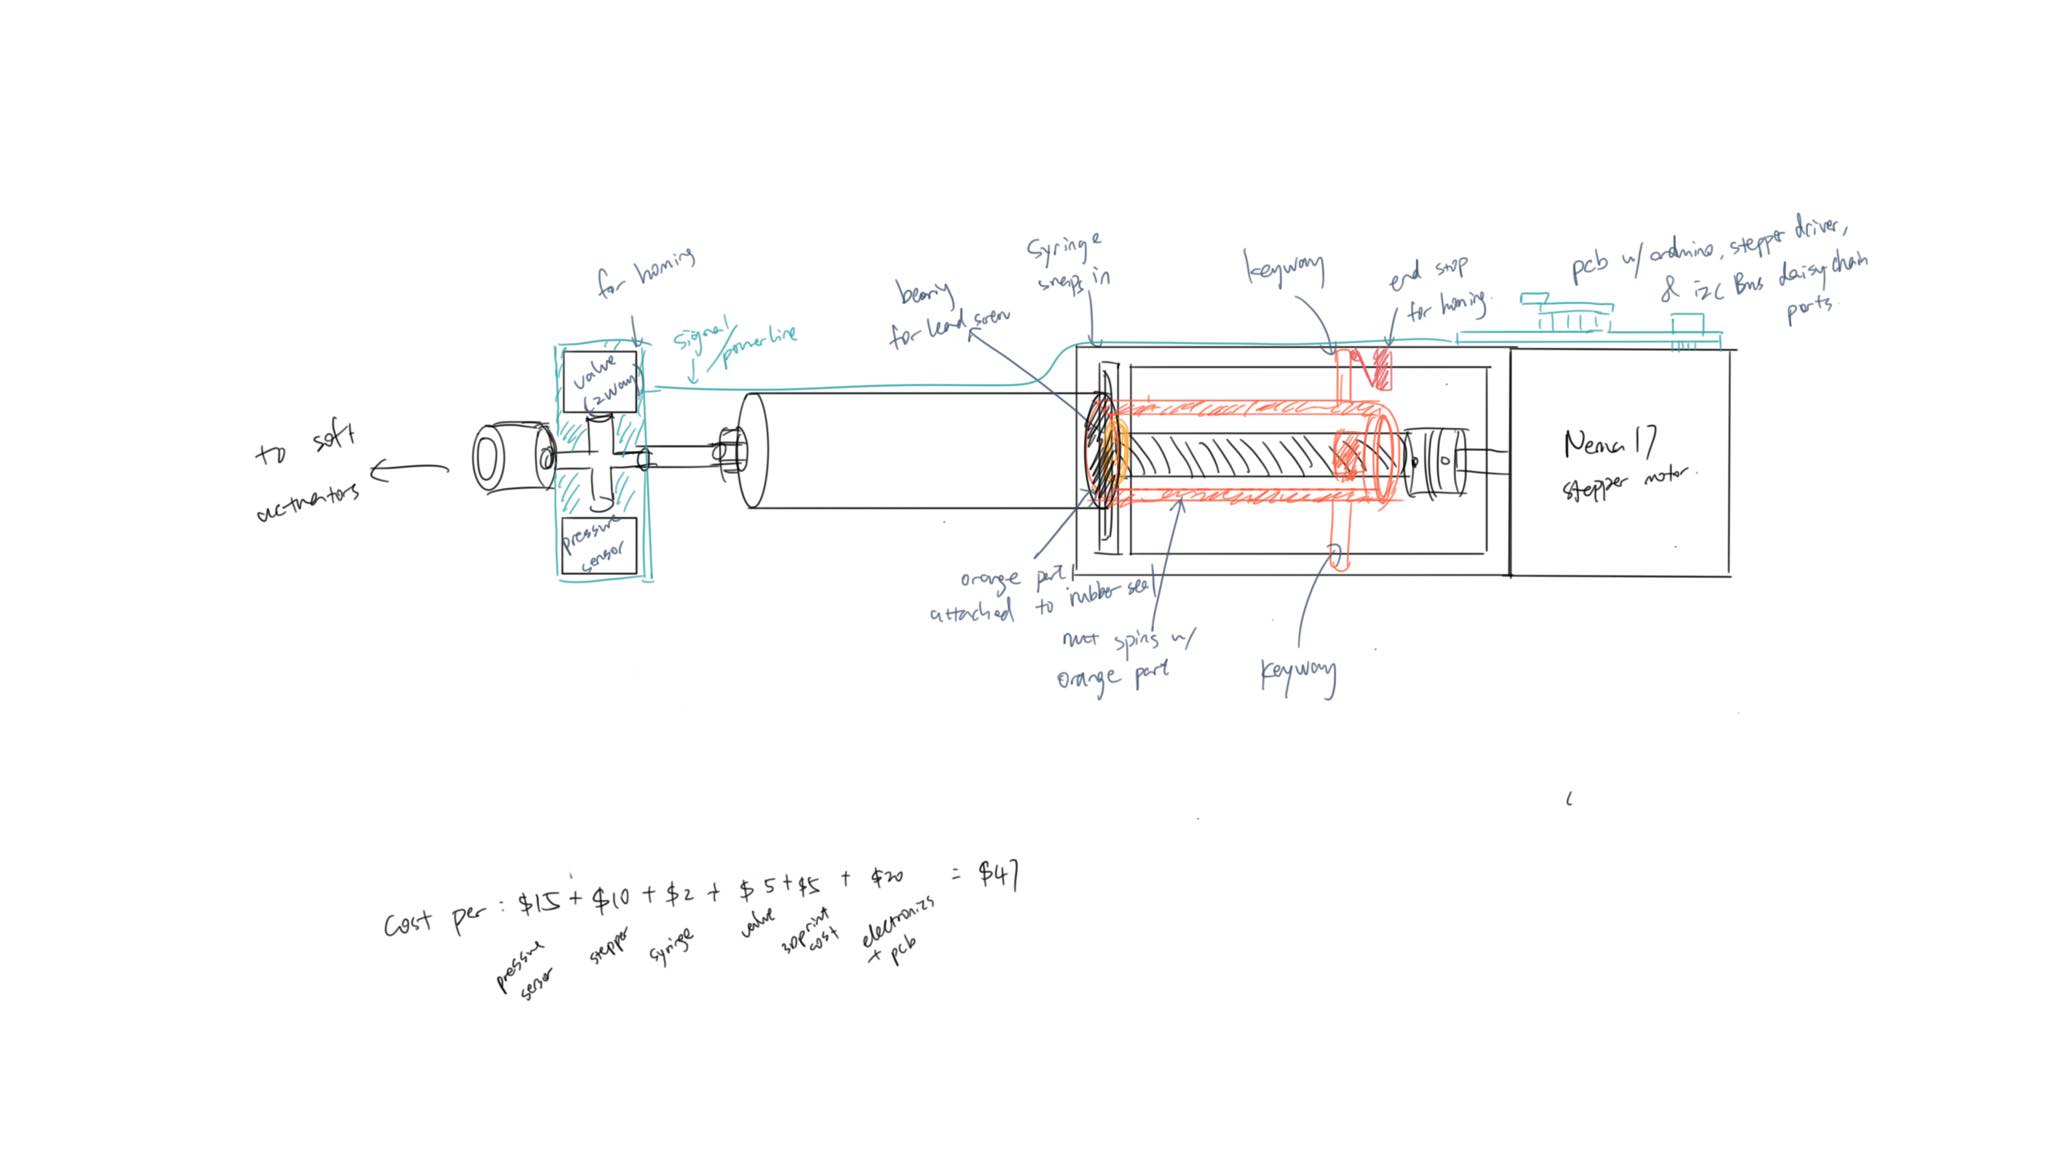 to soft
actuators
for homing
valve
(2way)
pressure
sensor
signal/
powerline
bearing
for lead screw
Syringe
snaps in
keyway
end stop
for homing.
pcb w/ arduino, stepper driver,
& i2c Bus daisychain
ports.
Nema 17
stepper motor.
orange part
attached to rubber seal
nut spins w/
orange part
keyway
Cost per : $15 + $10 + $2 + $5 + $5 + $20 = $47
pressure
sensor
stepper
syringe
valve
3dprint
cost
electronics
+ pcb